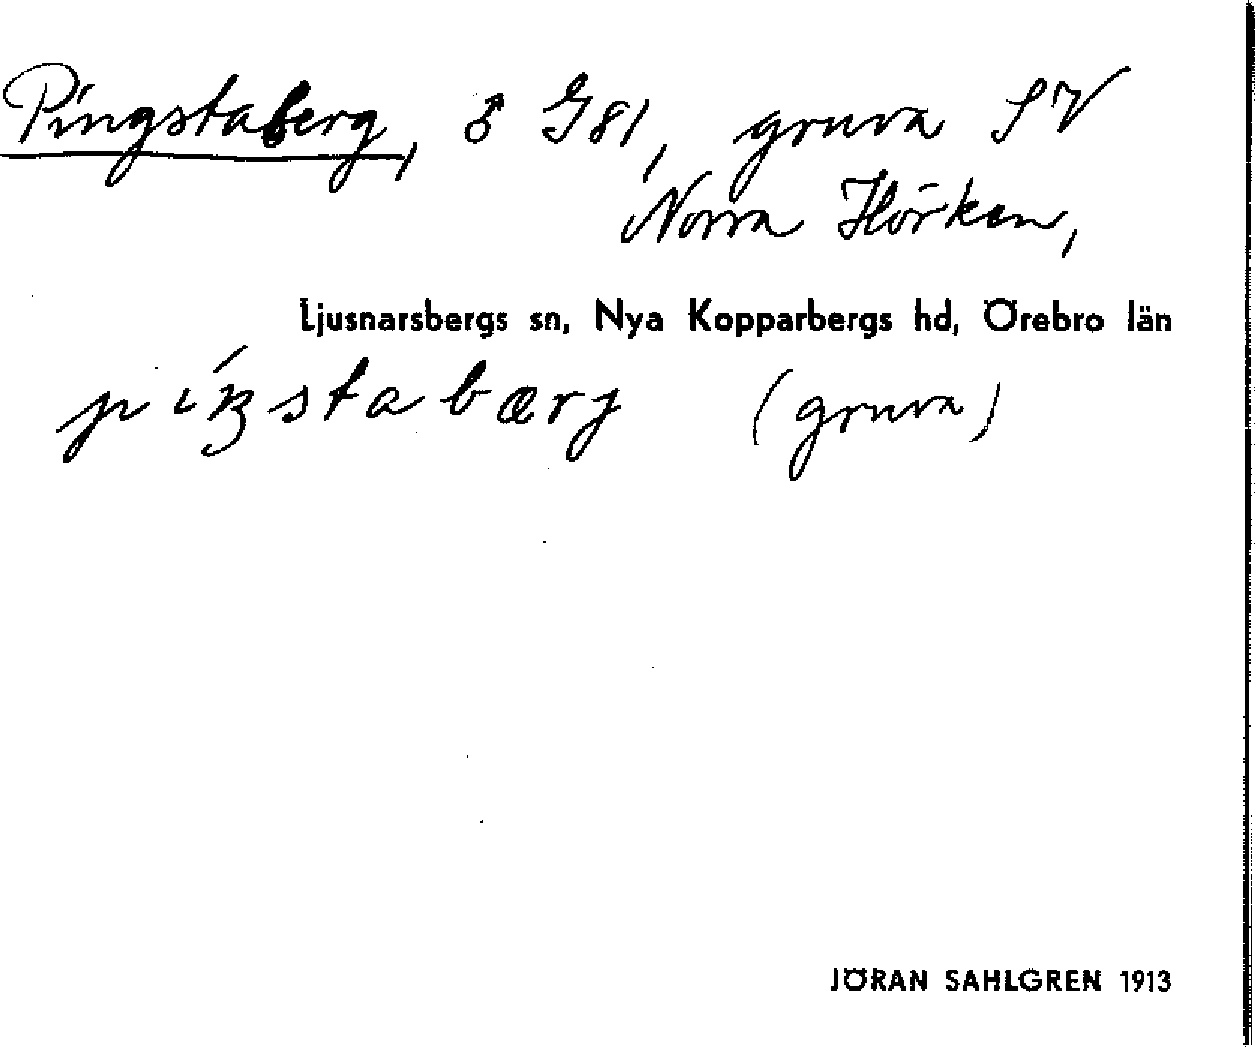 Pingstaberg, ♂ G81, gruva SV
Norra Hörken,
Ljusnarsbergs sn, Nya Kopparbergs hd, Örebro län
píŋstabærj (gruva)
JÖRAN SAHLGREN 1913